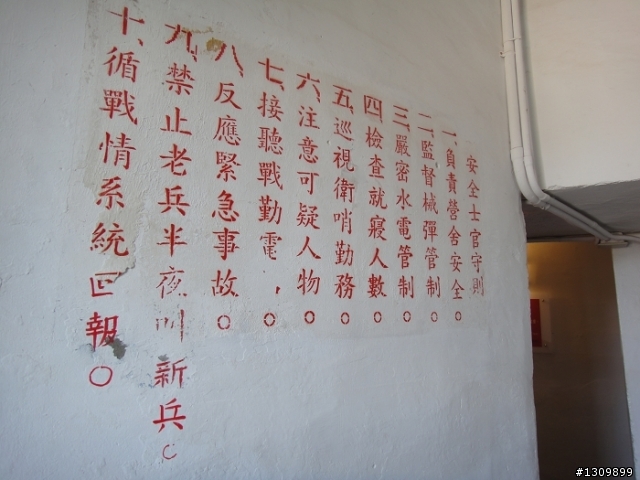 安全士官守則
一、負責營舍安全。
二、監督械彈管制。
三、嚴密水電管制。
四、檢查就寢人數。
五、巡視衛哨勤務。
六、注意可疑人物。
七、接聽戰勤電，。
八、反應緊急事故。
九、禁止老兵半夜叫新兵。
十、循戰情系統回報。
#1309899